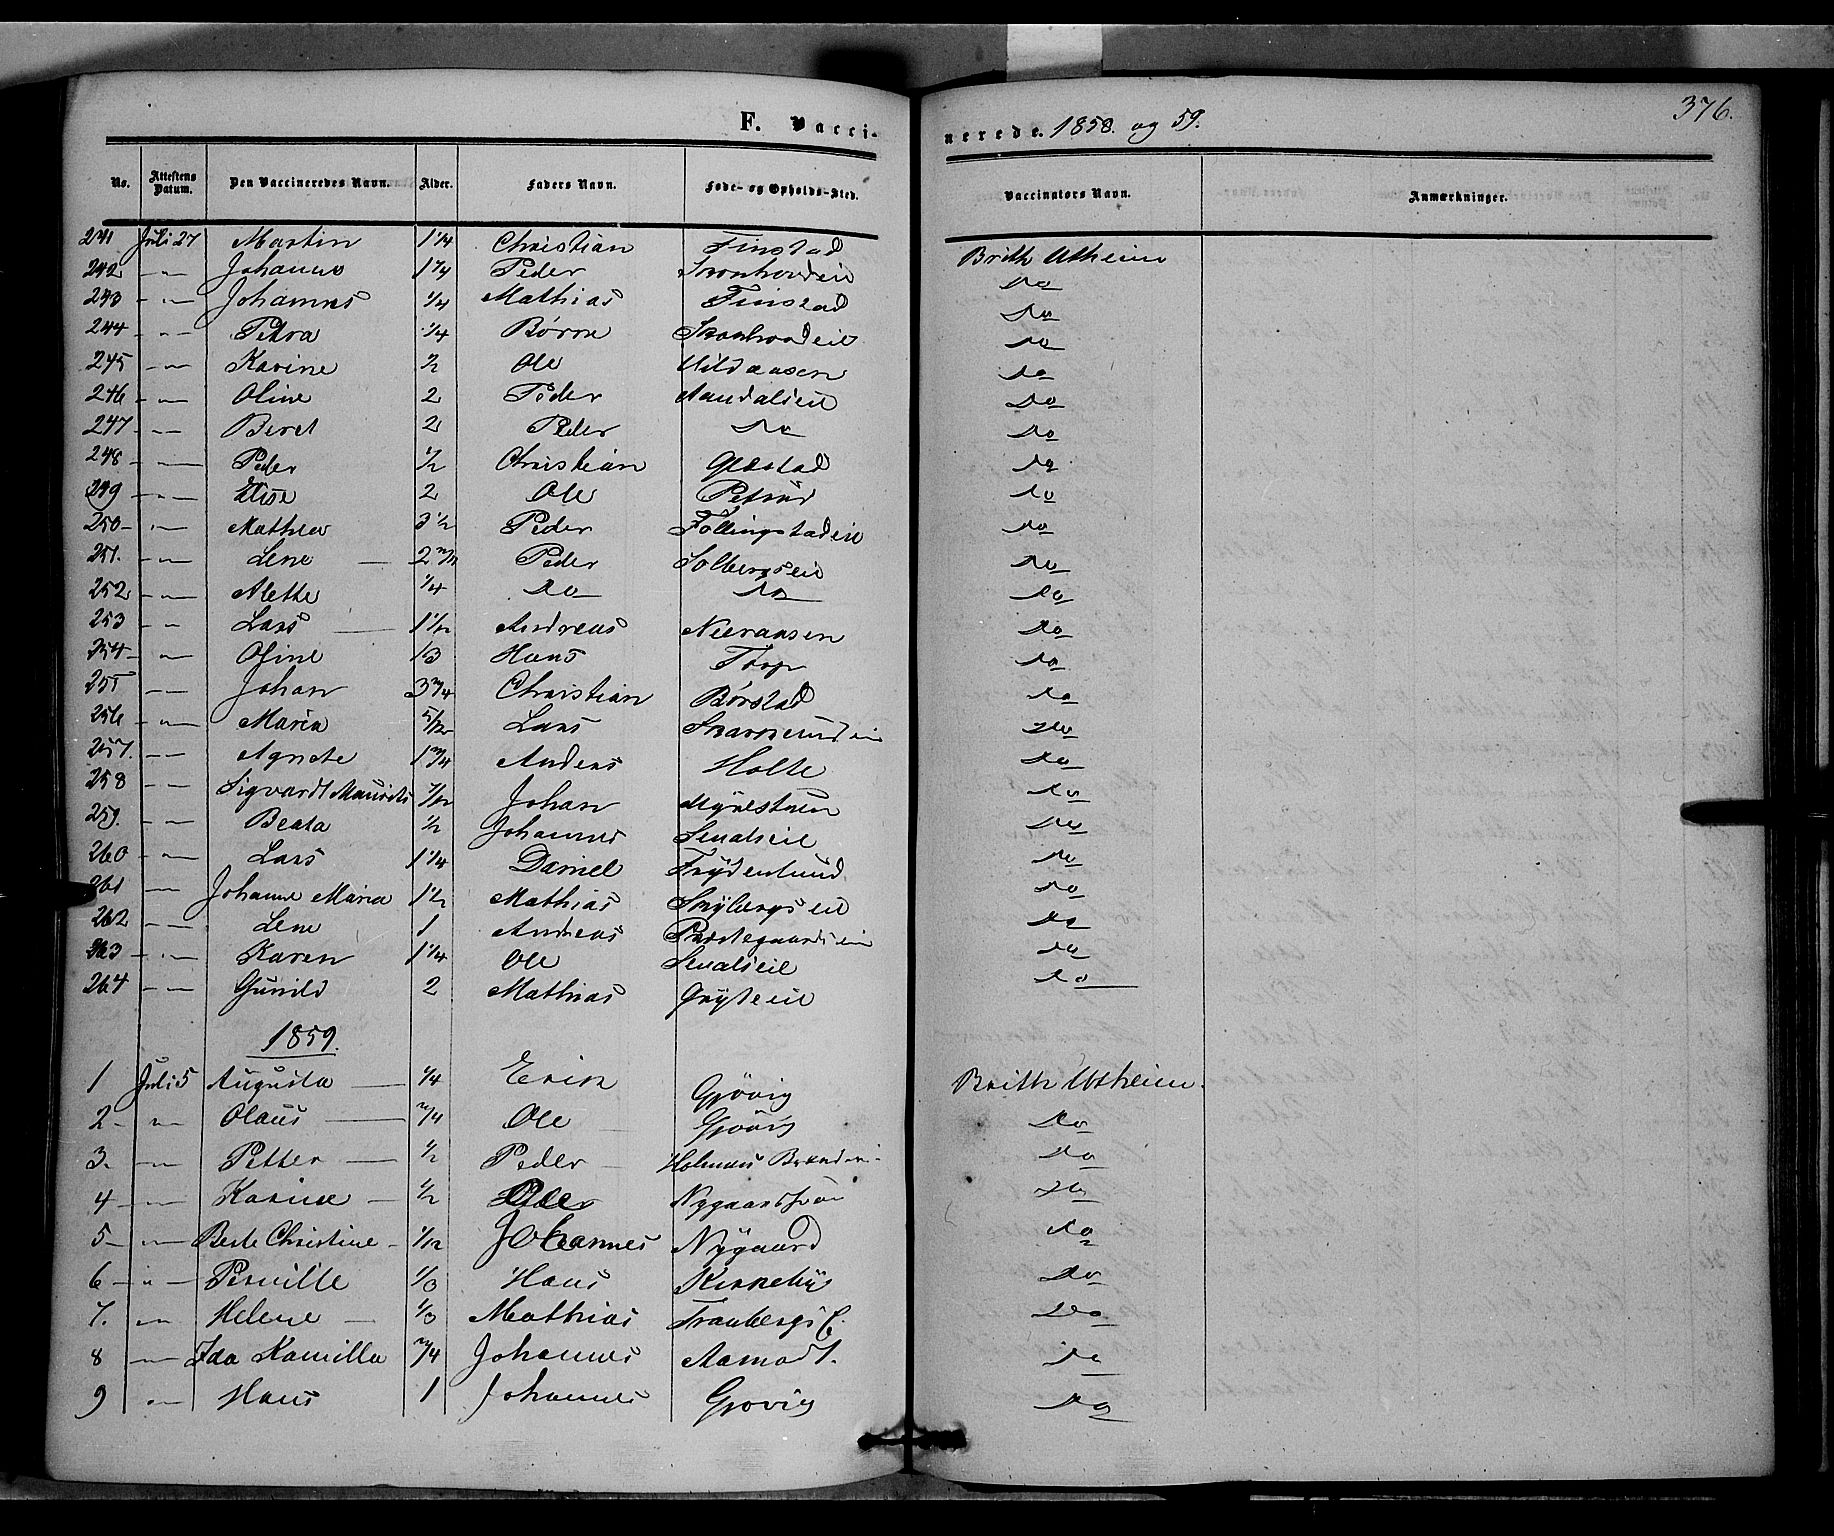 F. Vaccinerede. 1858. og 59. 376.
No. Attestens Datum. Den Vaccineredes Navn. Alder. Faders Navn. Føde- og Opholds-Sted. Vaccinators Navn. Anmærkninger.
241 Juli 27 Martin 1 1/4 Christian Finstad Brith Utheim
242 - " - Johannes 1 1/4 Peder Do
243 - " - Johannes 1/4 Mathias Finstad Do
244 - " - Petra 1/4 Børre Do
245 - " - Karine 1/2 Ole Do
246 - " - Oline 2 Peder Aandalseie Do
247 - " - Beret 2 Peder Do Do
248 - " - Peder 1/2 Christian Glæstad Do
249 - " - Elise 2 Ole Petsrud Do
250 - " - Mathea 3 1/2 Peder Føllingstadeie Do
251. - " - Lene 2 Peder Solbergseie Do
252 - " - Mette 1/4 Do Do Do
253 " Lars 1 1/2 Andreas Do
254 - " - Oline 13 Hans Torp Do
255 - " - Johan 3 3/4 Christian Børstad Do
256 - " - Maria 5/12 Lars Do
257. - " - Agnete 1 3/4 Anders Holte Do
258 - " - Sigvardt Maurits 7/12 Johan Myrestuen Do
259. - " - Beata 1/2 Johannes Do
260 - " - Lars 1 1/4 Daniel Frydenlund Do
261 - " - Johanne Maria 1 1/2 Mathias Do
262 - " - Lene 1 Andreas Præstegaardseie Do
263 - " - Karen 1 1/4 Ole Do
264 - " - Gunild 2 Mathias Gryteeie Do
1859.
1 Juli 5 Augusta 1/4 Erik Gjøvig Brith Utheim.
2 - " - Olaus 3/4 Ole Gjøvig Do
3. - " - Petter 1/2 Peder Do
4 - " - Karine 1/2 Ole Do
5 - " - Berte Christine 1/12 Johannes Nygaard Do
6 - " - Pernille 1/3 Hans Kirkeby Do
7. - " - Helene 1/3 Mathias Do
8 - " - Ida Kamilla 3/4 Johannes Aamodt. Do
9 - " - Hans 1 Johannes Gjøvig Do